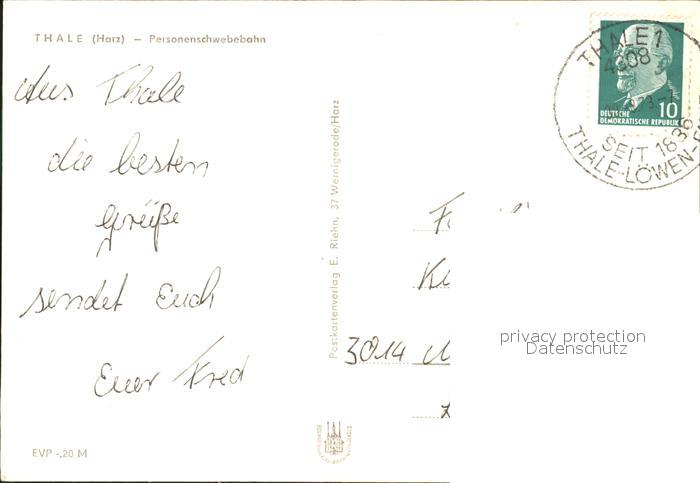 THALE (Harz) – Personenschwebebahn
Aus Thale
die besten
Grüße
sendet Euch
Euer Fred
EVP -,20 M
Postkartenverlag E. Riehn, 37 Wernigerode/Harz
THALE 1
4308
SEIT 1836
THALE-LÖWEN-
DEUTSCHE
DEMOKRATISCHE REPUBLIK
10
3014
privacy protection
Datenschutz